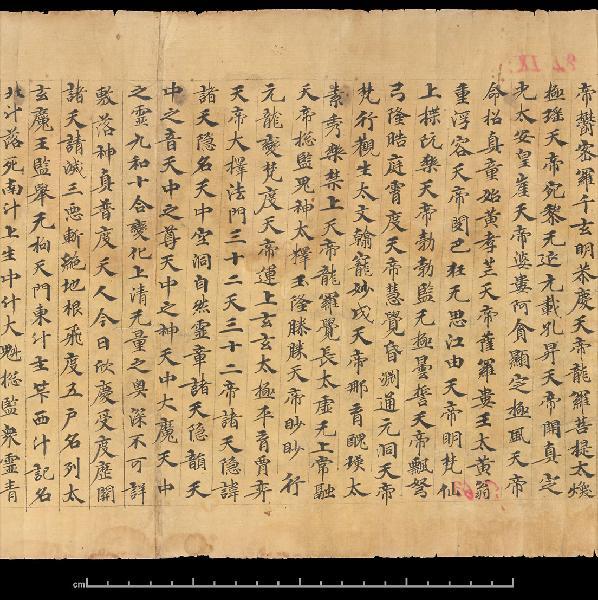 帝欝密羅千玄明恭慶天帝龍羅菩提太煥
極瑤天帝宛黎无延元載孔昇天帝開真定
光太安皇崖天帝婆婁阿貪顯定極風天帝
命招真童始黃孝芒天帝薩羅婁王太黃翁
重浮容天帝閔巴狂无思江由天帝明梵仙
上揲阮樂天帝勃勃監无極曇誓天帝飄弩
弓隆晧庭霄度天帝慧覺昏渊通元洞天帝
梵行觀生太文翰寵妙成天帝那育醜瑛太
素秀樂禁上天帝龍羅覺長太虛无上常融
天帝揔監鬼神太釋玉隆勝勝天帝眇眇行
元龍變梵度天帝運上玄玄太極平育賈弈
天帝大擇法門三十二天三十二帝諸天隱諱
諸天隱名天中空洞自然靈章諸天隱韻天
中之音天中之尊天中之神天中大魔天中
之靈九和十合變化上清无量之奧深不可詳
敷落神真普度天人今日欣慶受度歷關
諸天請滅三惡斬絕地根飛度五戶名列太
玄魔王監舉无拘天門東汁主笇西汁記名
北汁落死南汁上生中汁大魁揔監眾靈青
cm